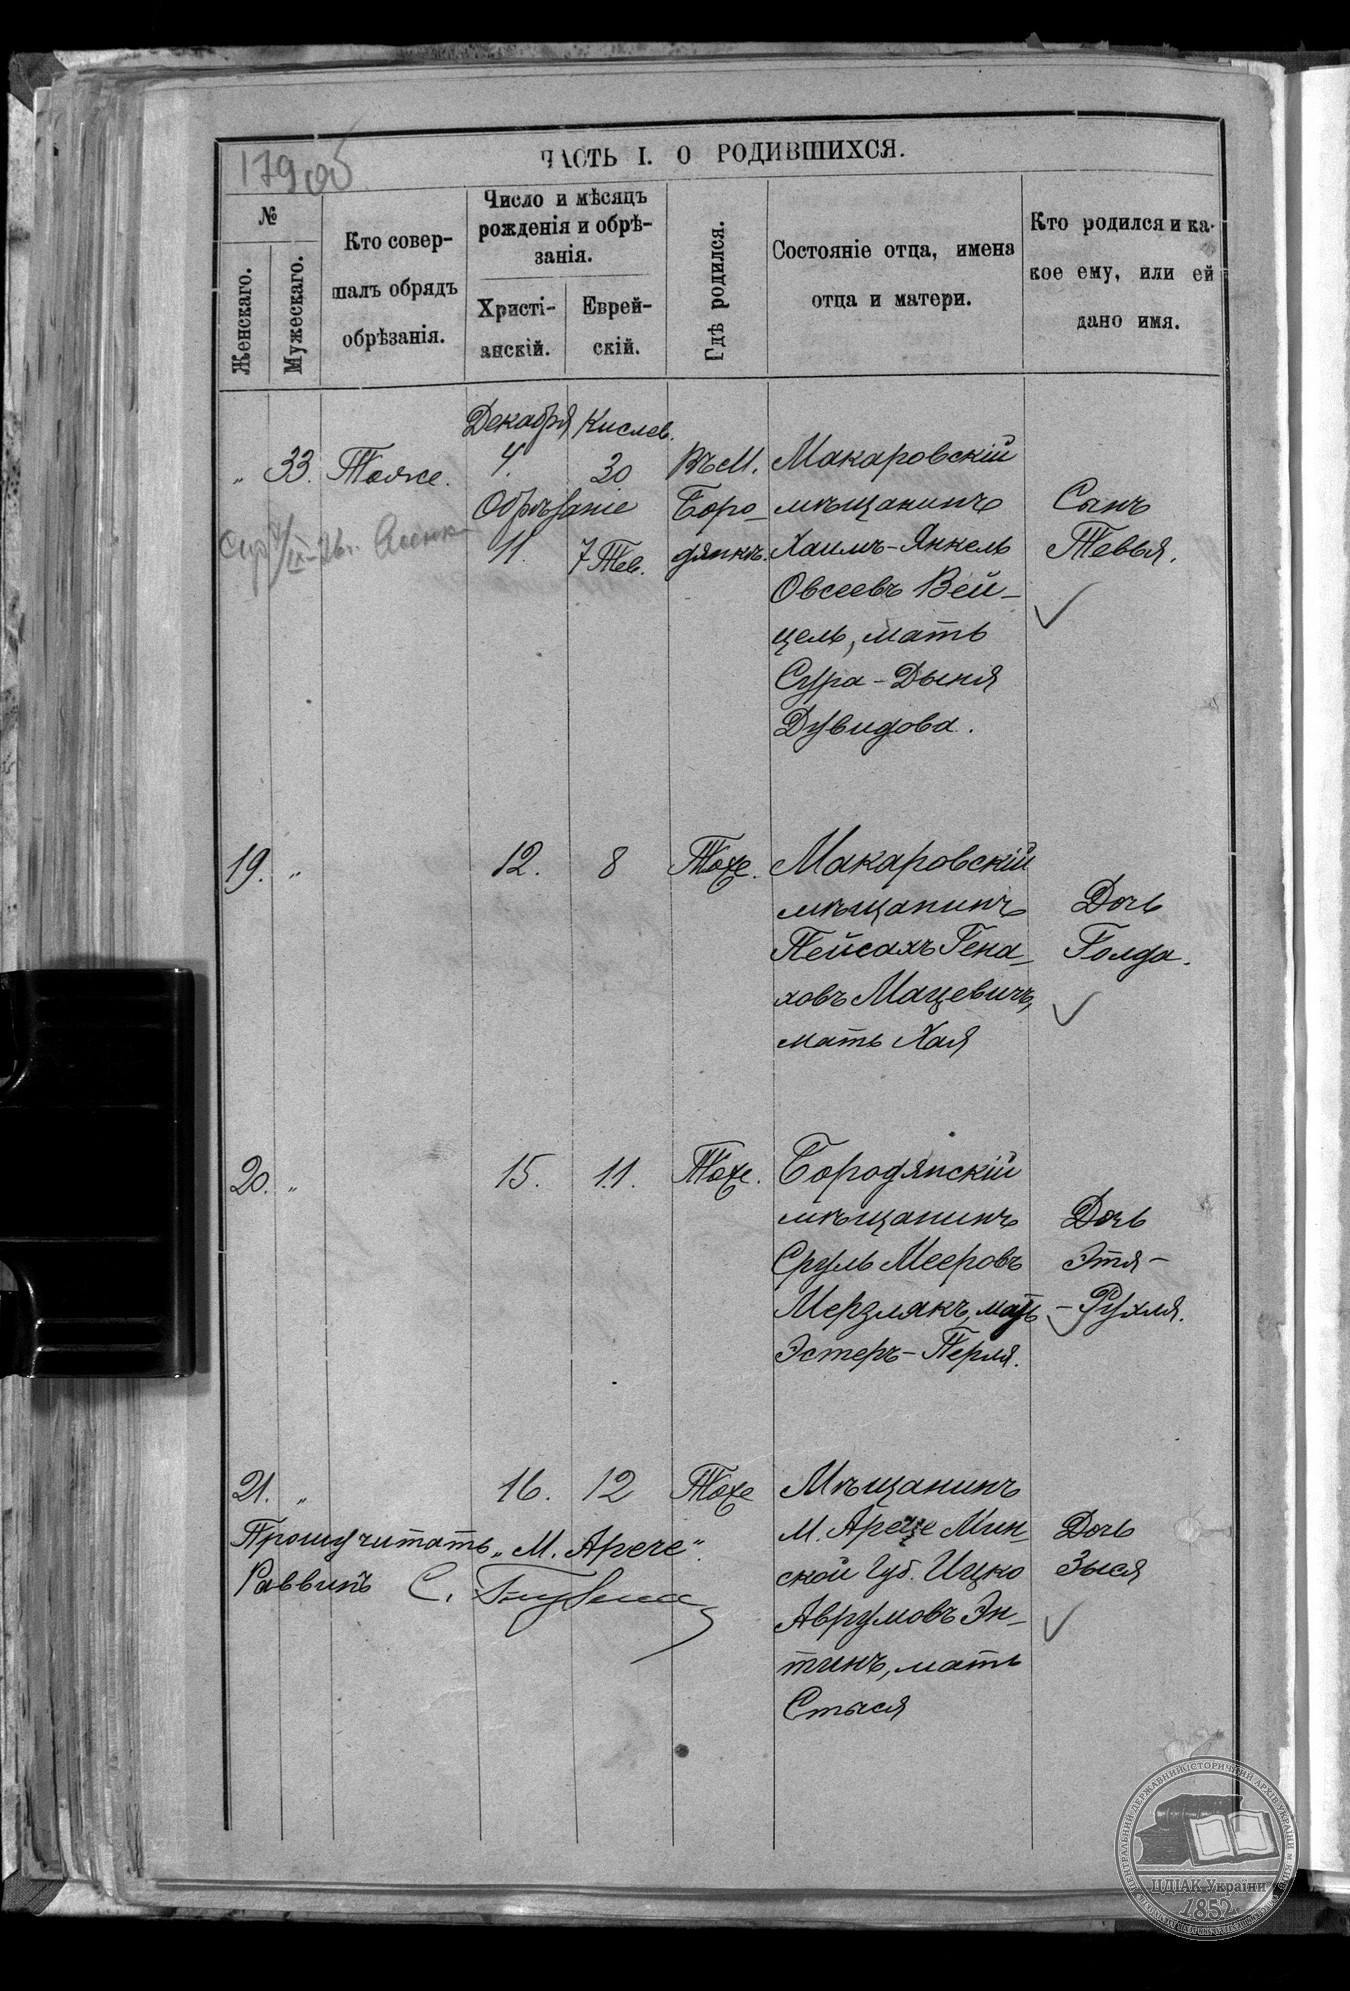 179 об
ЧАСТЬ I. О РОДИВШИХСЯ.
№
Женскаго.
Мужескаго.
Кто совер-
шалъ обрядъ
обрѣзанія.
Число и мѣсяцъ
рожденія и обрѣ-
занія.
Христі-
анскій.
Еврей-
скій.
Гдѣ родился.
Состояніе отца, имена
отца и матери.
Кто родился и ка-
кое ему, или ей
дано имя.
Декабря Кислев.
„ 33. Тоже. 4. 30 Въ М. Макаровскій
Обрѣзаніе Боро- мѣщанинъ Сынъ
11. 7 Тев. дянкѣ. Хаимъ-Янкель Тевья.
Овсеевъ Вей-
цель, мать
Сура-Дыня
Дувидова.
19. „ 12. 8 Тоже. Макаровскій
мѣщанинъ Дочь
Пейсахъ Гена- Голда.
ховъ Мацевичъ,
мать Хая
20. „ 15. 11. Тоже. Бородянскій
мѣщанинъ Дочь
Сруль Мееровъ Этя-
Мерзлякъ, мать -Рухля.
Эстеръ-Перля.
21. „ 16. 12 Тоже Мѣщанинъ
м. Арече Мин- Дочь
ской Губ. Ицко Зыся
Аврумовъ Эн-
тинъ, мать
Стыся
Прошу читать „М. Арече“.
Раввинъ С.
ЦЕНТРАЛЬНИЙ ДЕРЖАВНИЙ ІСТОРИЧНИЙ АРХІВ УКРАЇНИ М. КИЇВ
ЦДІАК України
1852